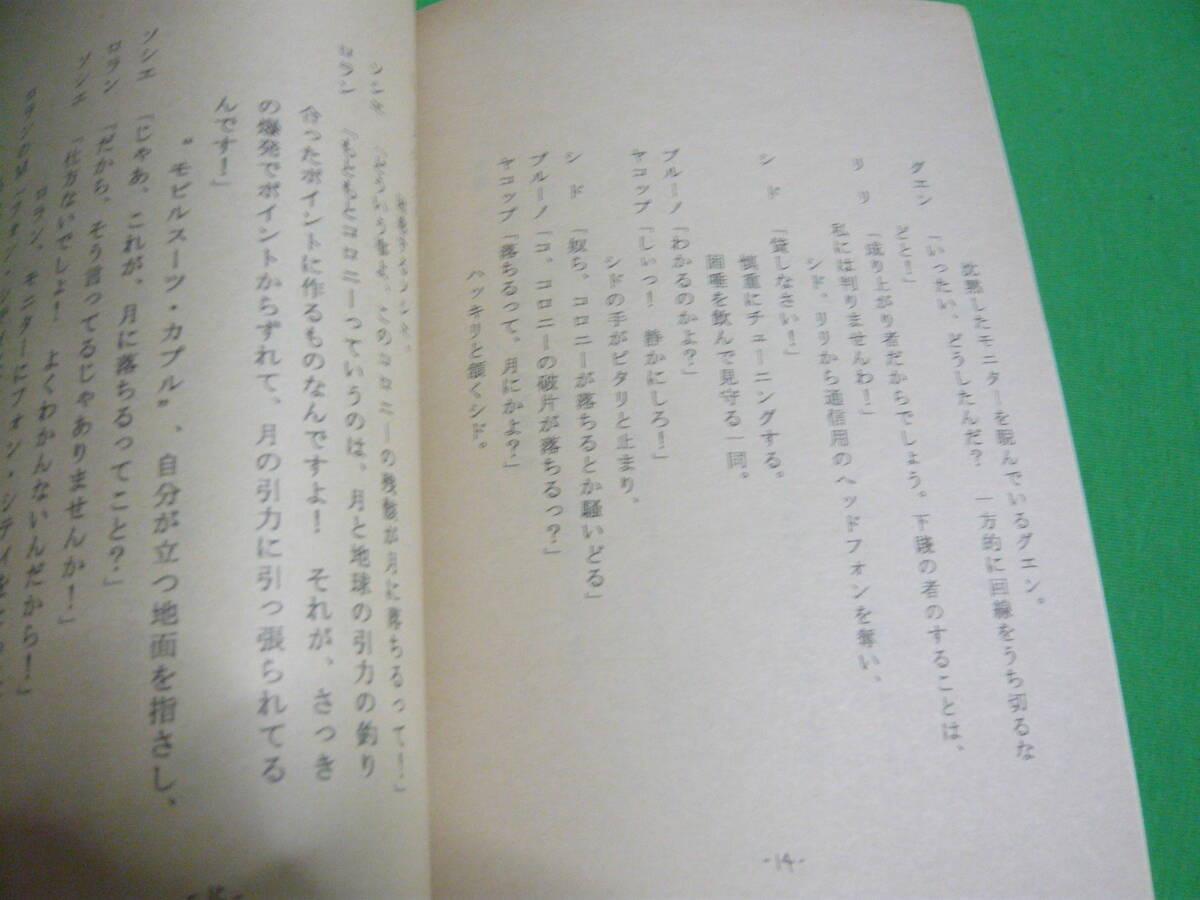 沈黙したモニターを睨んでいるグエン。
グエン「いったい、どうしたんだ? 一方的に回線をうち切るな
どと!」
リリ「成り上がり者だからでしょう。下賎の者のすることは、
私には判りませんわ!」
シド、リリから通信用のヘッドフォンを奪い、
シド「貸しなさい!」
慎重にチューニングする。
固唾を飲んで見守る一同。
ブルーノ「わかるのかよ?」
ヤコップ「しいっ! 静かにしろ!」
シドの手がピタリと止まり、
シド「奴ら、コロニーが落ちるとか騒いどる」
ブルーノ「コ、コロニーの破片が落ちるっ?」
ヤコップ「落ちるって、月にかよ?」
ハッキリと頷くシド。
-14-
このコロニーの残骸が月に落ちるって!」
ロラン「もともとコロニーっていうのは、月と地球の引力の釣り
合ったポイントに作るものなんですよ! それが、さっき
の爆発でポイントからずれて、月の引力に引っ張られてる
んです!」
〝モビルスーツ・カプル〟、自分が立つ地面を指さし、
ソシエ「じゃあ、これが、月に落ちるってこと?」
ロラン「だから、そう言ってるじゃありませんか!」
ソシエ「仕方ないでしょ! よくわかんないんだから!」
ロラン、モニターにフォン・シティを